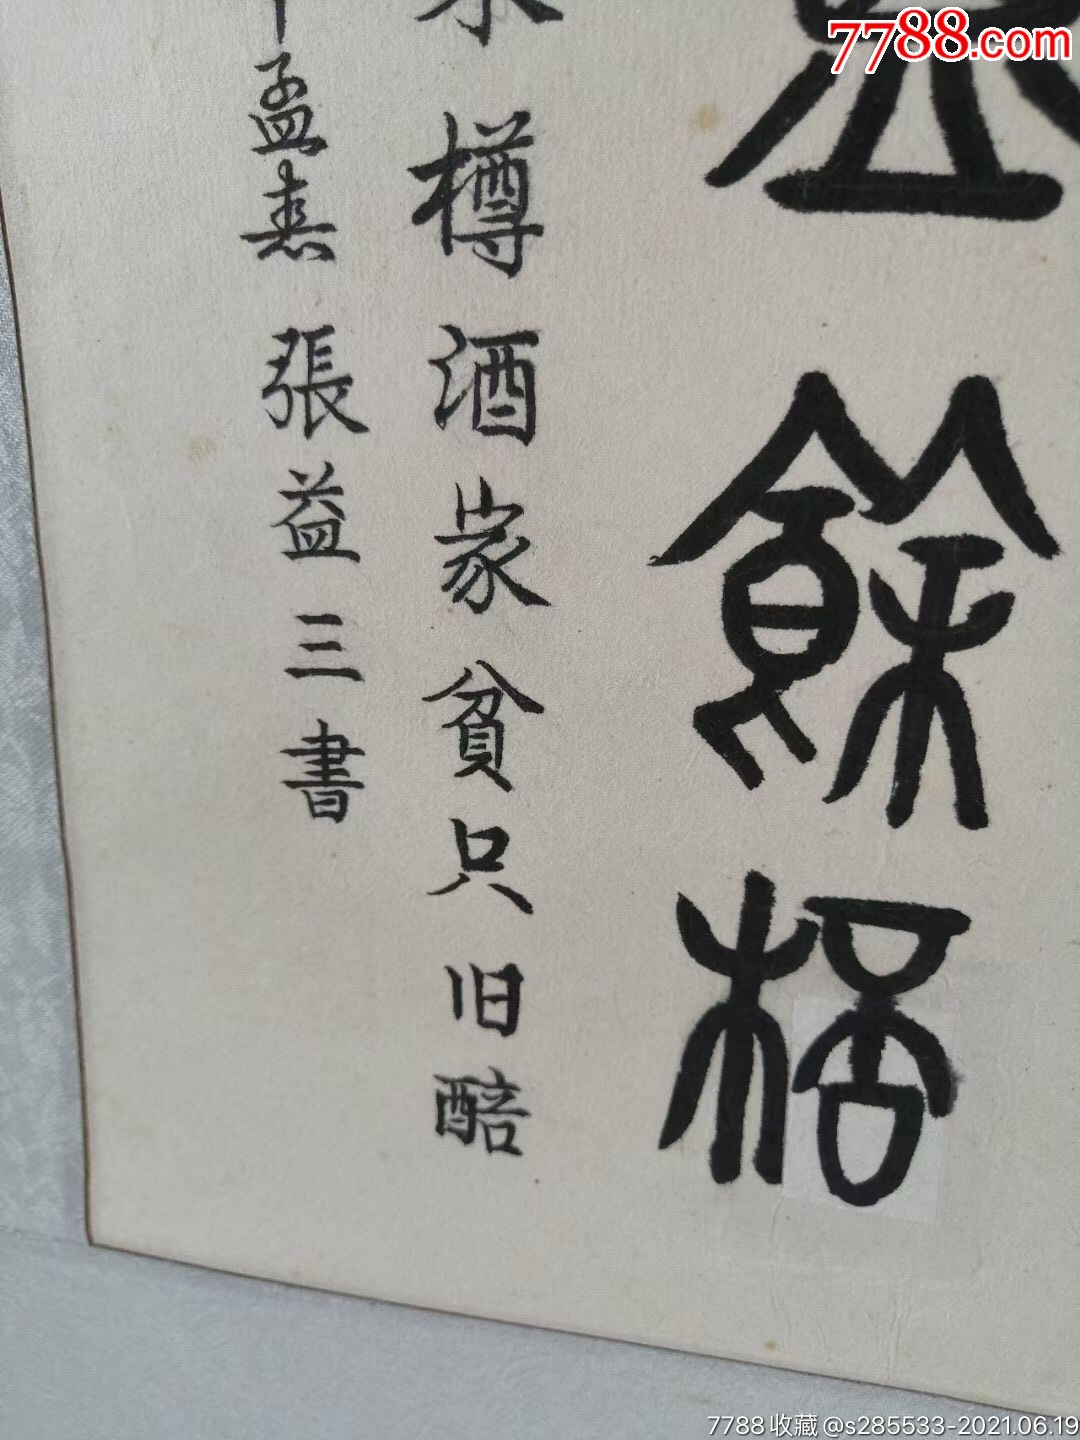 7788.com
餘桮
樽酒家貧只旧醅
孟 張益三書
7788收藏@s285533-2021.06.19